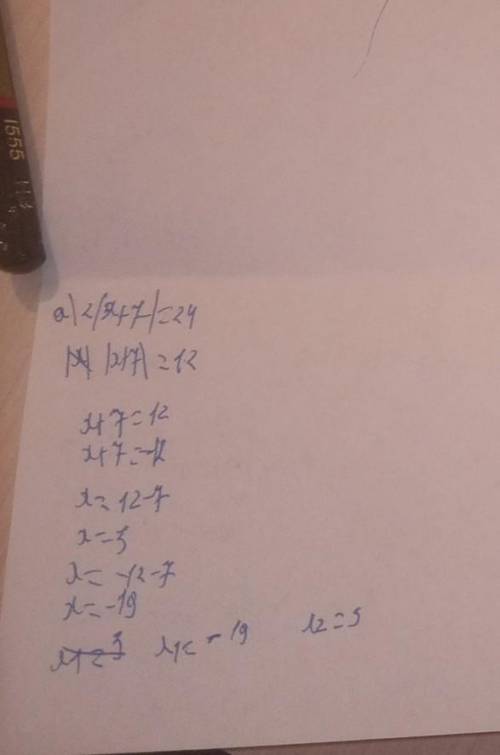 1555
а) 2|x+7|=24
|x+7|=12
x+7=12
x+7=-12
x=12-7
x=5
x=-12-7
x=-19
x1=-19 x2=5